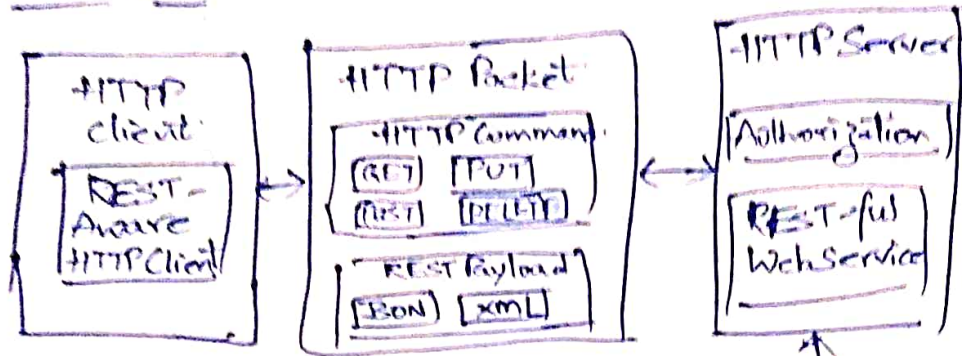 HTTP
client
REST-
Aware
HTTP Client
HTTP Packet
HTTP Command
GET PUT
POST DELETE
REST Payload
JSON XML
HTTP Server
Authorization
REST-ful
WebService